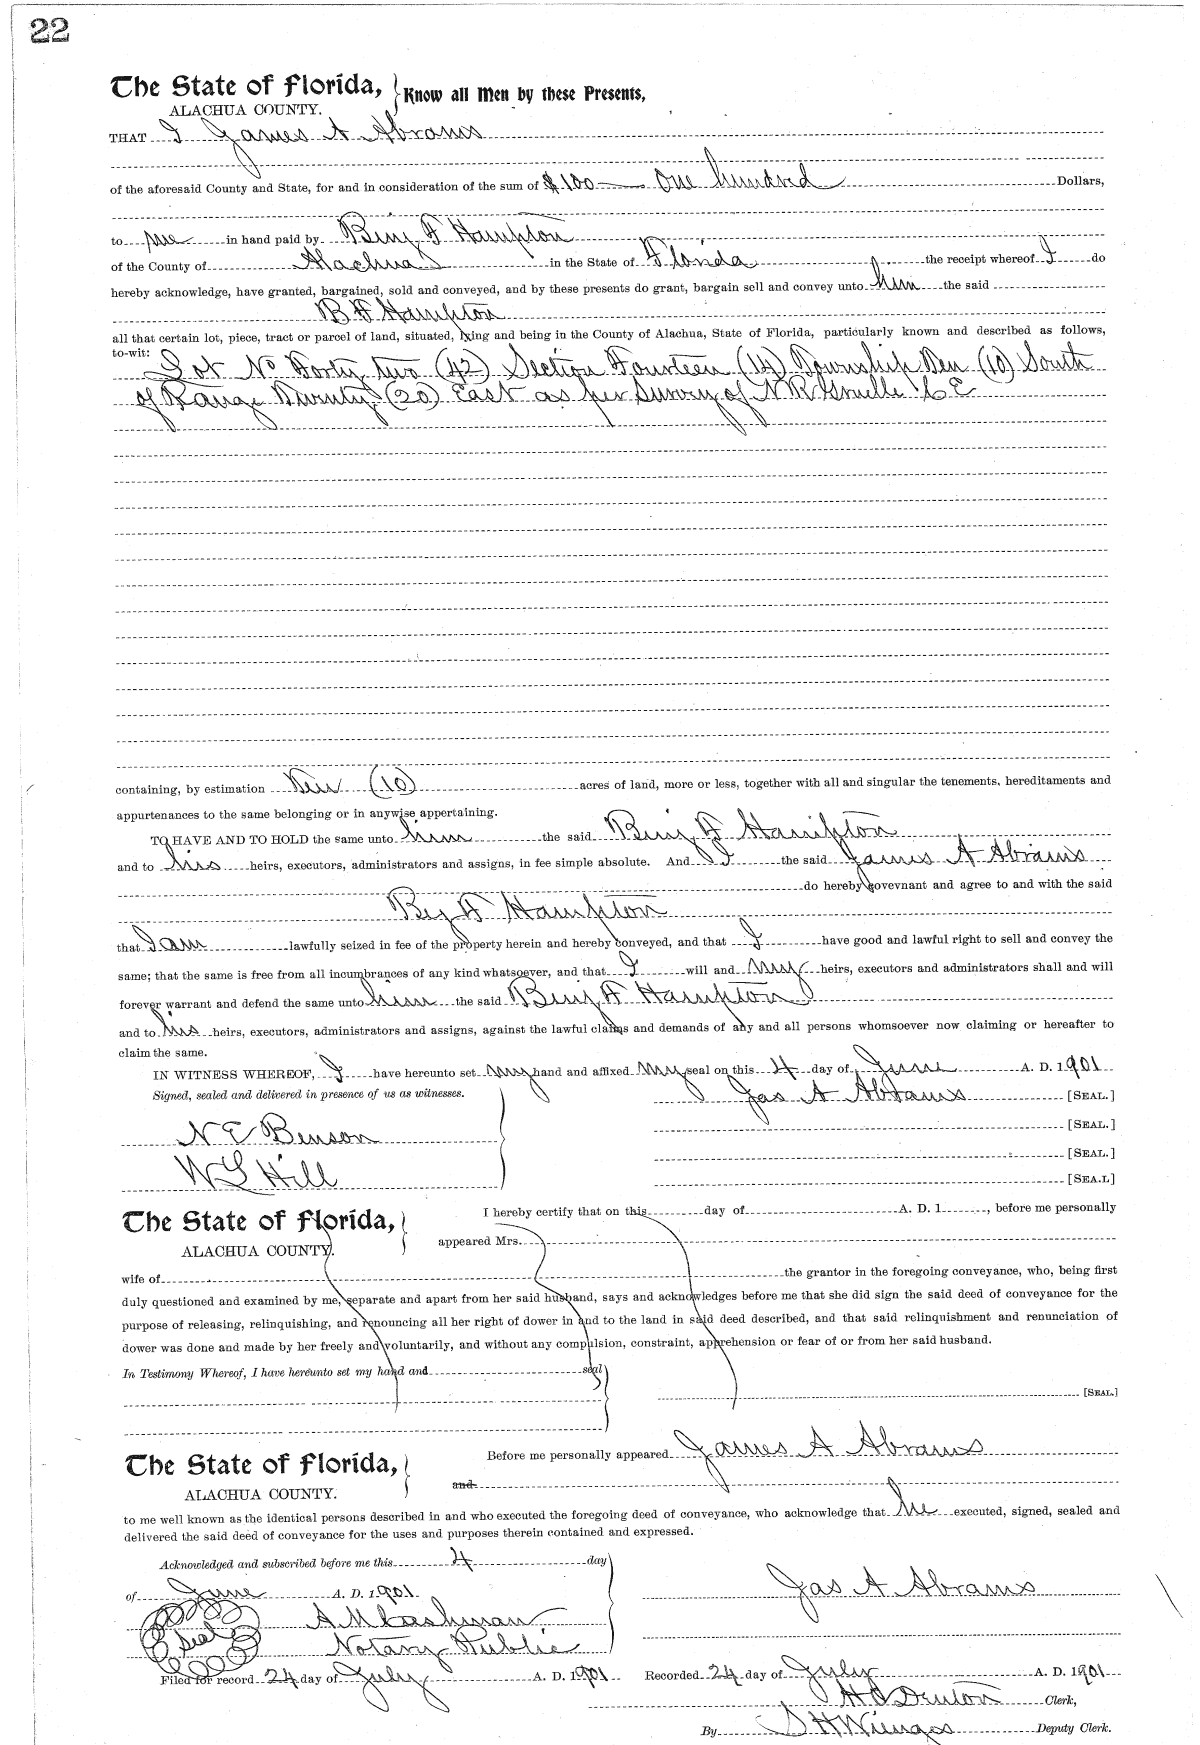 22
The State of Florida, Know all Men by these Presents,
ALACHUA COUNTY.
THAT I James A Abrams
of the aforesaid County and State, for and in consideration of the sum of $100 — One hundred Dollars,
to me in hand paid by Benj F Hampton
of the County of Alachua in the State of Florida the receipt whereof I do
hereby acknowledge, have granted, bargained, sold and conveyed, and by these presents do grant, bargain sell and convey unto him the said
B F Hampton
all that certain lot, piece, tract or parcel of land, situated, lying and being in the County of Alachua, State of Florida, particularly known and described as follows,
to-wit: Lot No Forty two (42) Section Fourteen (14) Township Ten (10) South
of Range Twenty (20) East as per Survey of N R Gruelle C E
containing, by estimation Ten (10) acres of land, more or less, together with all and singular the tenements, hereditaments and
appurtenances to the same belonging or in anywise appertaining.
TO HAVE AND TO HOLD the same unto him the said Benj F Hampton
and to his heirs, executors, administrators and assigns, in fee simple absolute. And I the said James A Abrams
do hereby govevnant and agree to and with the said
Benj F Hampton
that I am lawfully seized in fee of the property herein and hereby conveyed, and that I have good and lawful right to sell and convey the
same; that the same is free from all incumbrances of any kind whatsoever, and that I will and my heirs, executors and administrators shall and will
forever warrant and defend the same unto him the said Benj F Hampton
and to his heirs, executors, administrators and assigns, against the lawful claims and demands of any and all persons whomsoever now claiming or hereafter to
claim the same.
IN WITNESS WHEREOF, I have hereunto set my hand and affixed my seal on this 4 day of June A. D. 1901
Signed, sealed and delivered in presence of us as witnesses. Jas A Abrams [SEAL.]
[SEAL.]
N E Benson
[SEAL.]
W G Hill [SEA.L]
The State of Florida, I hereby certify that on this day of A. D. 1 , before me personally
ALACHUA COUNTY. appeared Mrs.
wife of the grantor in the foregoing conveyance, who, being first
duly questioned and examined by me, separate and apart from her said husband, says and acknowledges before me that she did sign the said deed of conveyance for the
purpose of releasing, relinquishing, and renouncing all her right of dower in and to the land in said deed described, and that said relinquishment and renunciation of
dower was done and made by her freely and voluntarily, and without any compulsion, constraint, apprehension or fear of or from her said husband.
In Testimony Whereof, I have hereunto set my hand and seal
[SEAL.]
The State of Florida, Before me personally appeared James A Abrams
ALACHUA COUNTY. and
to me well known as the identical persons described in and who executed the foregoing deed of conveyance, who acknowledge that he executed, signed, sealed and
delivered the said deed of conveyance for the uses and purposes therein contained and expressed.
Acknowledged and subscribed before me this 4 day
of June A. D. 1901 Jas A Abrams
A M Cashman
Seal Notary Public
Filed for record 24 day of July A. D. 1901 Recorded 24 day of July A. D. 1901
Clerk,
By S H Wienges Deputy Clerk.